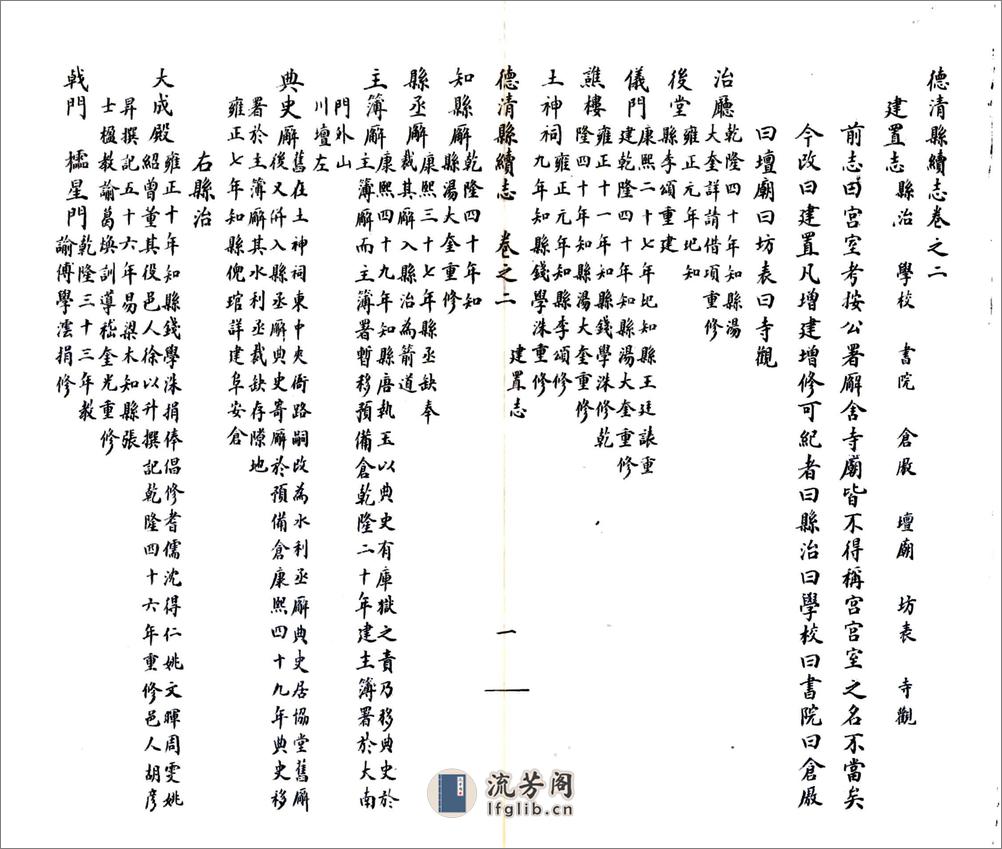 德清縣續志卷之二
建置志 縣治 學校 書院 倉廒 壇廟 坊表 寺觀
前志曰宮室考按公署廨舍寺廟皆不得稱宮宮室之名不當矣
今改曰建置凡增建增修可紀者曰縣治曰學校曰書院曰倉廒
曰壇廟曰坊表曰寺觀
治廳乾隆四十年知縣湯
大奎詳請借項重修
後堂雍正元年圮知
縣李頌重建
儀門康熙二十七年圮知縣王廷諫重
建乾隆四十年知縣湯大奎重修
譙樓雍正十一年知縣錢學洙修乾
隆四十年知縣湯大奎重修
土神祠雍正元年知縣李頌修
九年知縣錢學洙重修
德清縣續志 卷之二 建置志 一
知縣廨乾隆四十年知
縣湯大奎重修
縣丞廨康熙三十七年縣丞缺奉
裁其廨入縣治為箭道
主簿廨康熙四十九年知縣唐執玉以典史有庫獄之責乃移典史於
主簿廨而主簿署暫移預備倉乾隆二十年建主簿署於大南
門外山
川壇左
典史廨舊在土神祠東中央衙路嗣改為水利丞廨典史居協堂舊廨
後又併入縣丞廨典史寄廨於預備倉康熙四十九年典史移
署於主簿廨其水利丞裁缺存隙地
雍正七年知縣倪琯詳建阜安倉
右縣治
大成殿雍正十年知縣錢學洙捐俸倡修耆儒沈得仁姚文暉周雯姚
紹曾董其役邑人徐以升撰記乾隆四十六年重修邑人胡彥
昇撰記五十六年易梁木知縣張
士楹教諭葛煥訓導嵇奎光重修
戟門 櫺星門乾隆三十三年教
諭傅學澐捐修
流芳阁
lfglib.cn